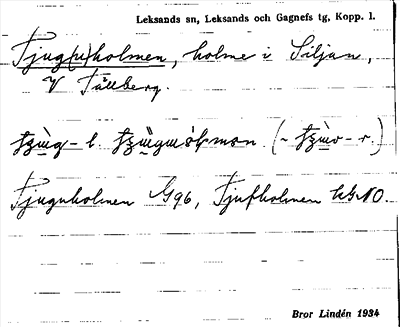 Leksands sn, Leksands och Gagnefs tg, Kopp. l.
Tjug(u)holmen, holme i Siljan,
V Tällberg.
l. (~ r.)
Tjuguholmen G96, Tjufholmen
Bror Lindén 1934